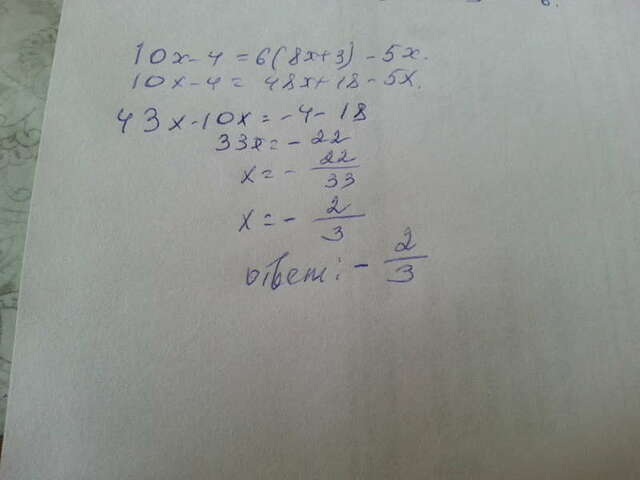 10x - 4 = 6(8x+3) - 5x.
10x - 4 = 48x + 18 - 5x.
43x - 10x = -4 - 18
33x = - 22
x = - 22/33
x = - 2/3
ответ: - 2/3